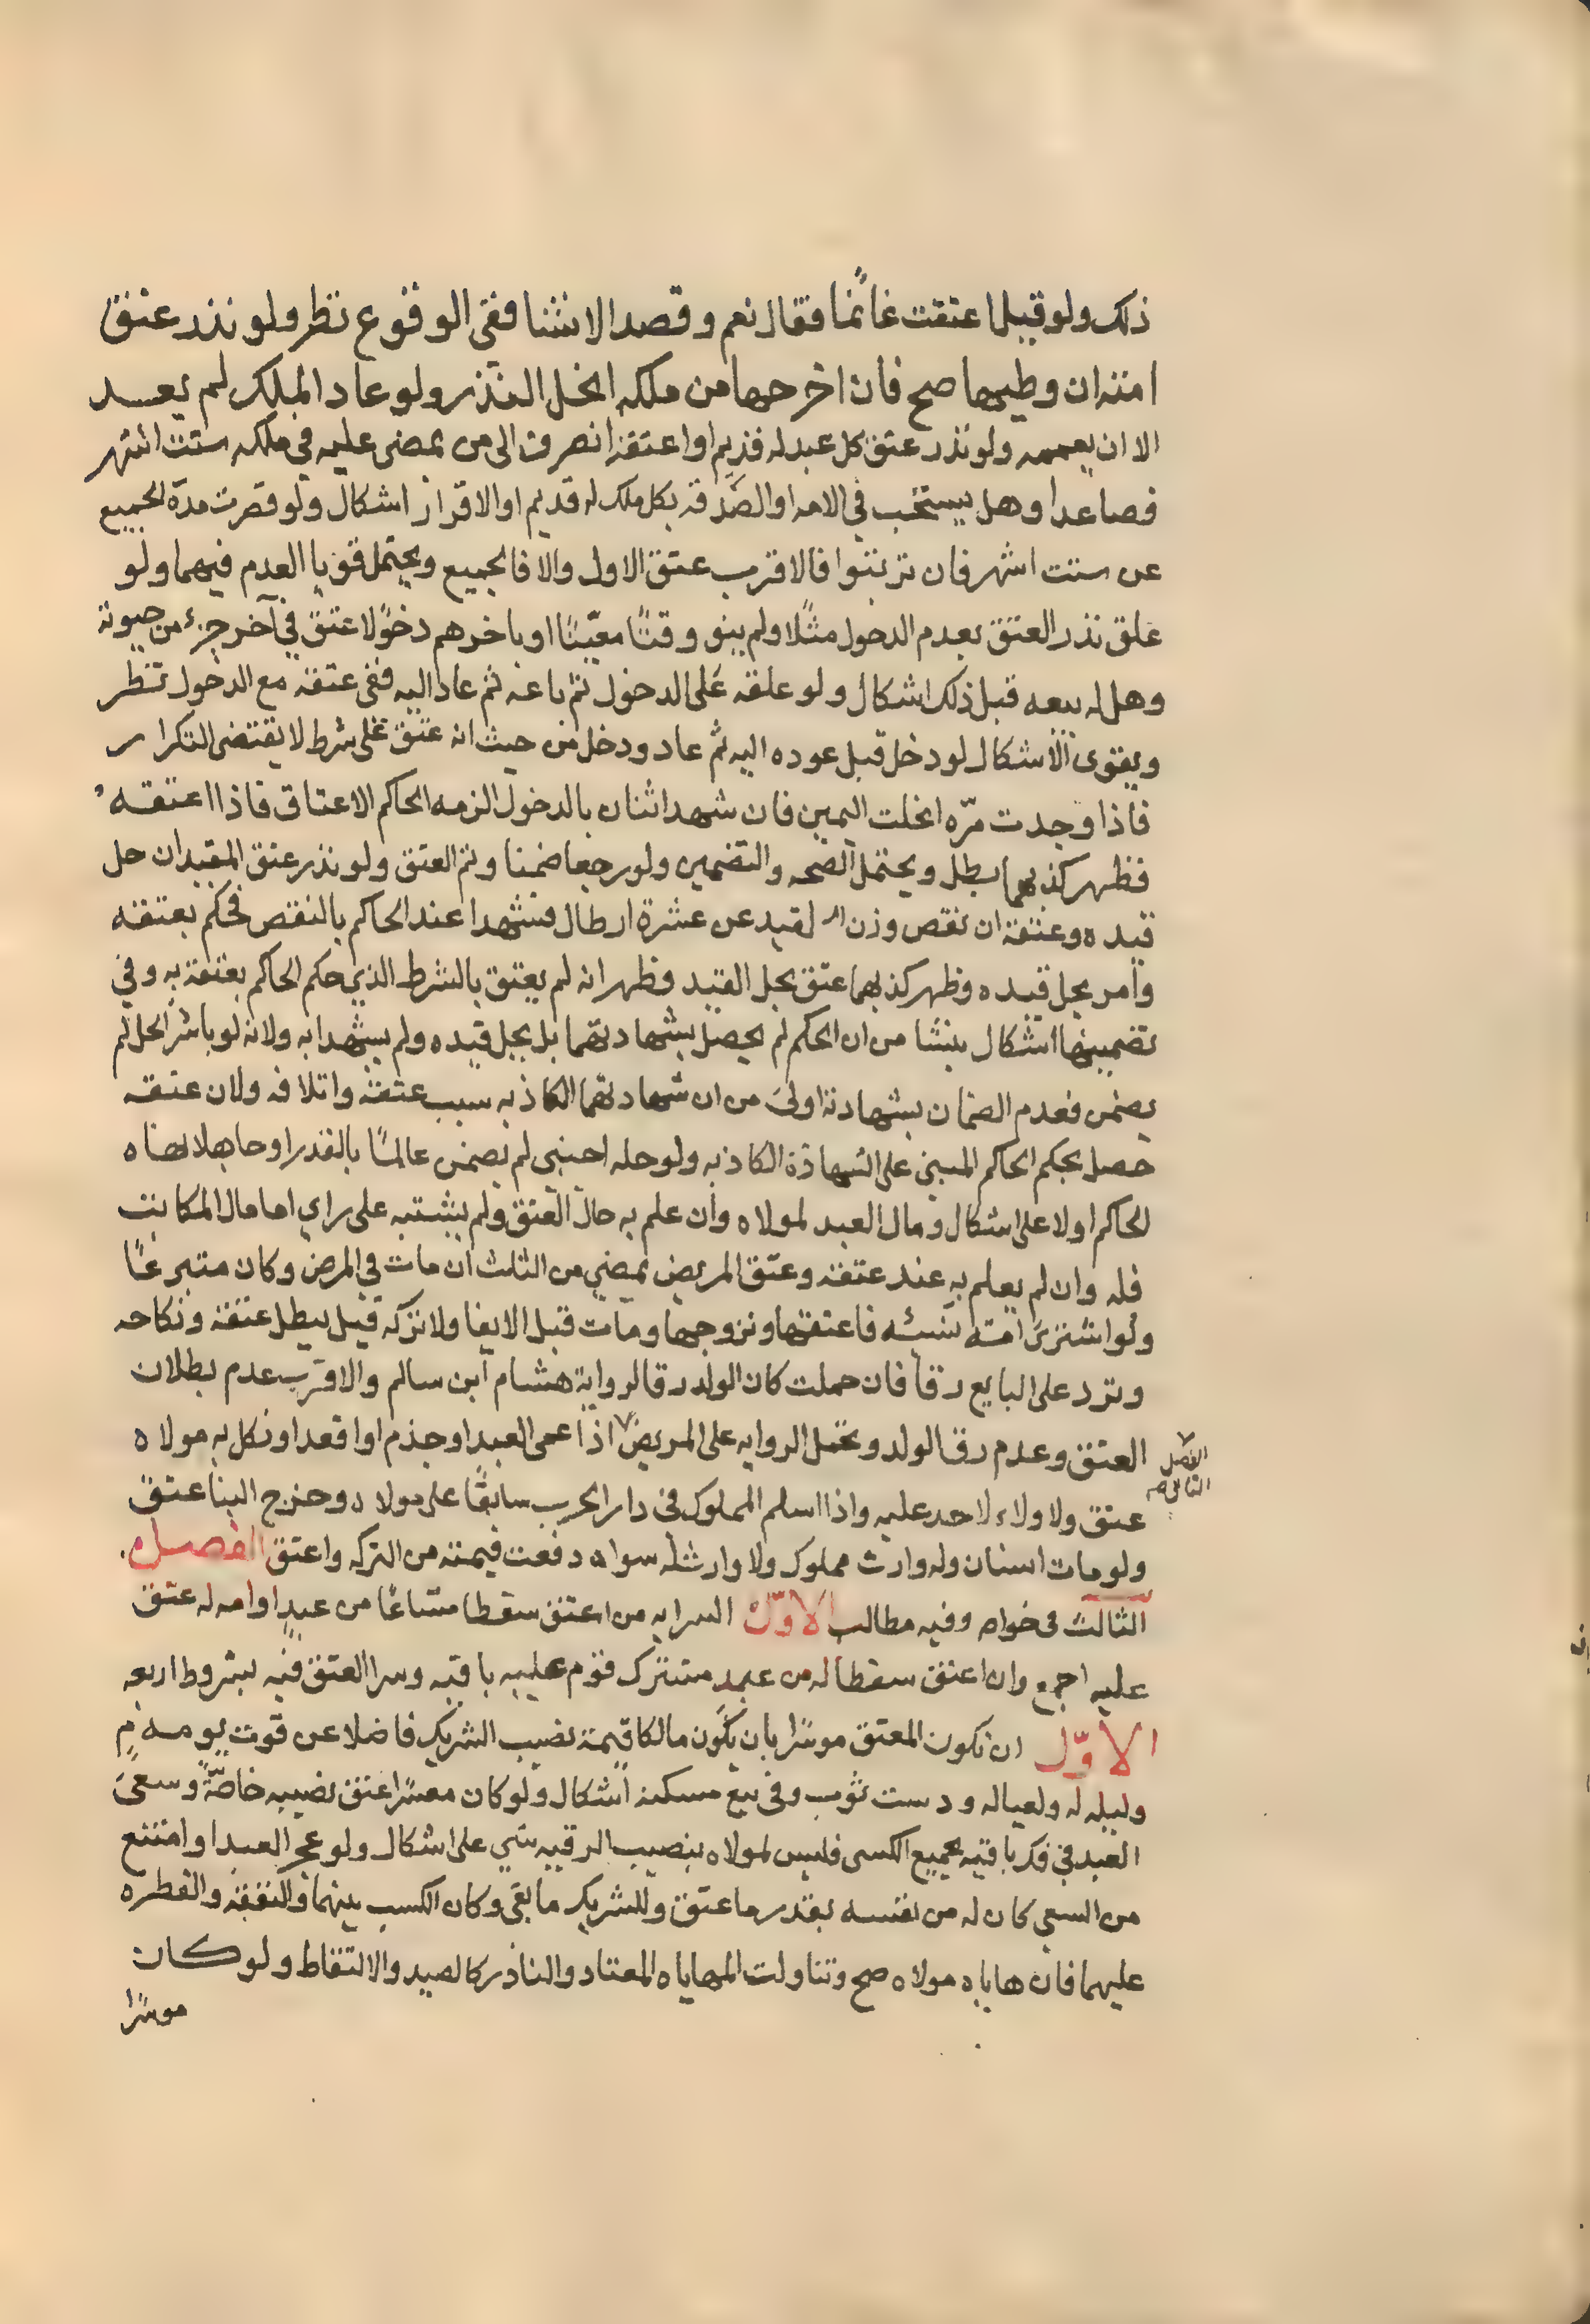 ذلك ولو قيل اعتقت غانما فقال نعم وقصد الانشا ففى الوقوع نظر ولو نذر عتق
امته ان وطيها صح فان اخرجها من ملكه انحل النذر ولو عاد الملك لم يعد
الا ان يعممه ولو نذر عتق كل عبد له قديم او اعتقه انصرف الى من يمضى عليه في ملكه ستت اشهر
فصاعدا وهل يستحب في الامه او الصدقه بكل ملك له قديم او الاقرار اشكال ولو قصرت مدة الجميع
عن ستت اشهر فان ترتبوا فالاقرب عتق الاول والا فالجميع ويحتمل قويا العدم فيهما ولو
علق نذر العتق بعدم الدخول مثلا ولم ينو وقتا معينا او باخرهم دخولا عتق في آخر جزء من حيوته
وهل له بيعه قبل ذلك اشكال ولو علقه على الدخول ثم باعه ثم عاد اليه ففى عتقه مع الدخول نظر
ويقوى الاشكال لو دخل قبل عوده اليه ثم عاد ودخل من حيث انه عتق على شرط لا يقتضى التكرار
فاذا وجدت مرّه انحلت اليمين فان شهد اثنان بالدخول الزمه الحاكم الاعتاق فاذا اعتقه
فظهر كذبهما بطل ويحتمل الصحه والتضمين ولو رجعا ضمنا وتم العتق ولو نذر عتق المقيد ان حل
قيده وعتقه ان نقص وزن القيد عن عشرة ارطال فشهدا عند الحاكم بالنقص فحكم بعتقه
وامر بحل قيده وظهر كذبهما عتق بحل القيد وظهر انه لم يعتق بالشرط الذي حكم الحاكم بعتقه به وفي
تضمينهما اشكال ينشا من ان الحكم لم يحصل بشهادتهما بل بحل قيده ولم يشهدا به ولانه لو باشر الحل لم
يضمن فعدم الضمان بشهادته اولى من ان شهادتهما الكاذبه سبب عتقه واتلافه ولان عتقه
حصل بحكم الحاكم المبنى على الشهادة الكاذبه ولو حله اجنبى لم يضمن عالما بالنذر او جاهلا نهاه
الحاكم اولا على اشكال ومال العبد لمولاه وان علم به حال العتق ولم يشتبه على راي اما مال المكاتب
فله وان لم يعلم به عند عتقه وعتق المريض يمضي من الثلث ان مات في المرض وكان متبرعًا
ولو اشترى امته نسئه فاعتقها وتزوجها ومات قبل الايفا ولا تركه قيل يبطل عتقه ونكاحه
وترد على البايع رقا فان حملت كان الولد رقا لرواية هشام ابن سالم والاقرب عدم بطلان
العتق وعدم رق الولد وتحمل الروايه على المريض اذا عمى العبد او جذم او اقعد او نكل به مولاه
الفصل
الثانى
عتق ولا ولاء لاحد عليه واذا اسلم المملوك فى دار الحرب سابقًا على مولاه وخرج الينا عتق
ولو مات انسان وله وارث مملوك ولا وارث له سواه دفعت قيمته من التركه واعتق الفصل
الثالث فى خواصه وفيه مطالب الاوّل السرايه من اعتق سقطا مشاعًا من عبد او امه له عتق
عليه اجمع وان اعتق سقطا له من عبد مشترك قوم عليه باقيه وسرا العتق فيه بشروط اربعه
الاوّل ان يكون المعتق موسرًا بان يكون مالكا قيمة نصيب الشريك فاضلا عن قوت يومه
وليله له ولعياله ودست ثوب وفى بيع مسكنه اشكال ولو كان معسرًا عتق نصيبه خاصّةً وسعى
العبد في فك باقيه بجميع الكسى فليس لمولاه بنصيب الرقيه شي على اشكال ولو عجز العبد او امتنع
من السعي كان له من نفسه بقدر ما عتق وللشريك ما بقى وكان الكسب بينهما والنفقه والفطره
عليهما فان هاياه مولاه صح وتناولت المهاياه المعتاد والنادر كالصيد والالتقاط ولو كان
موسرًا